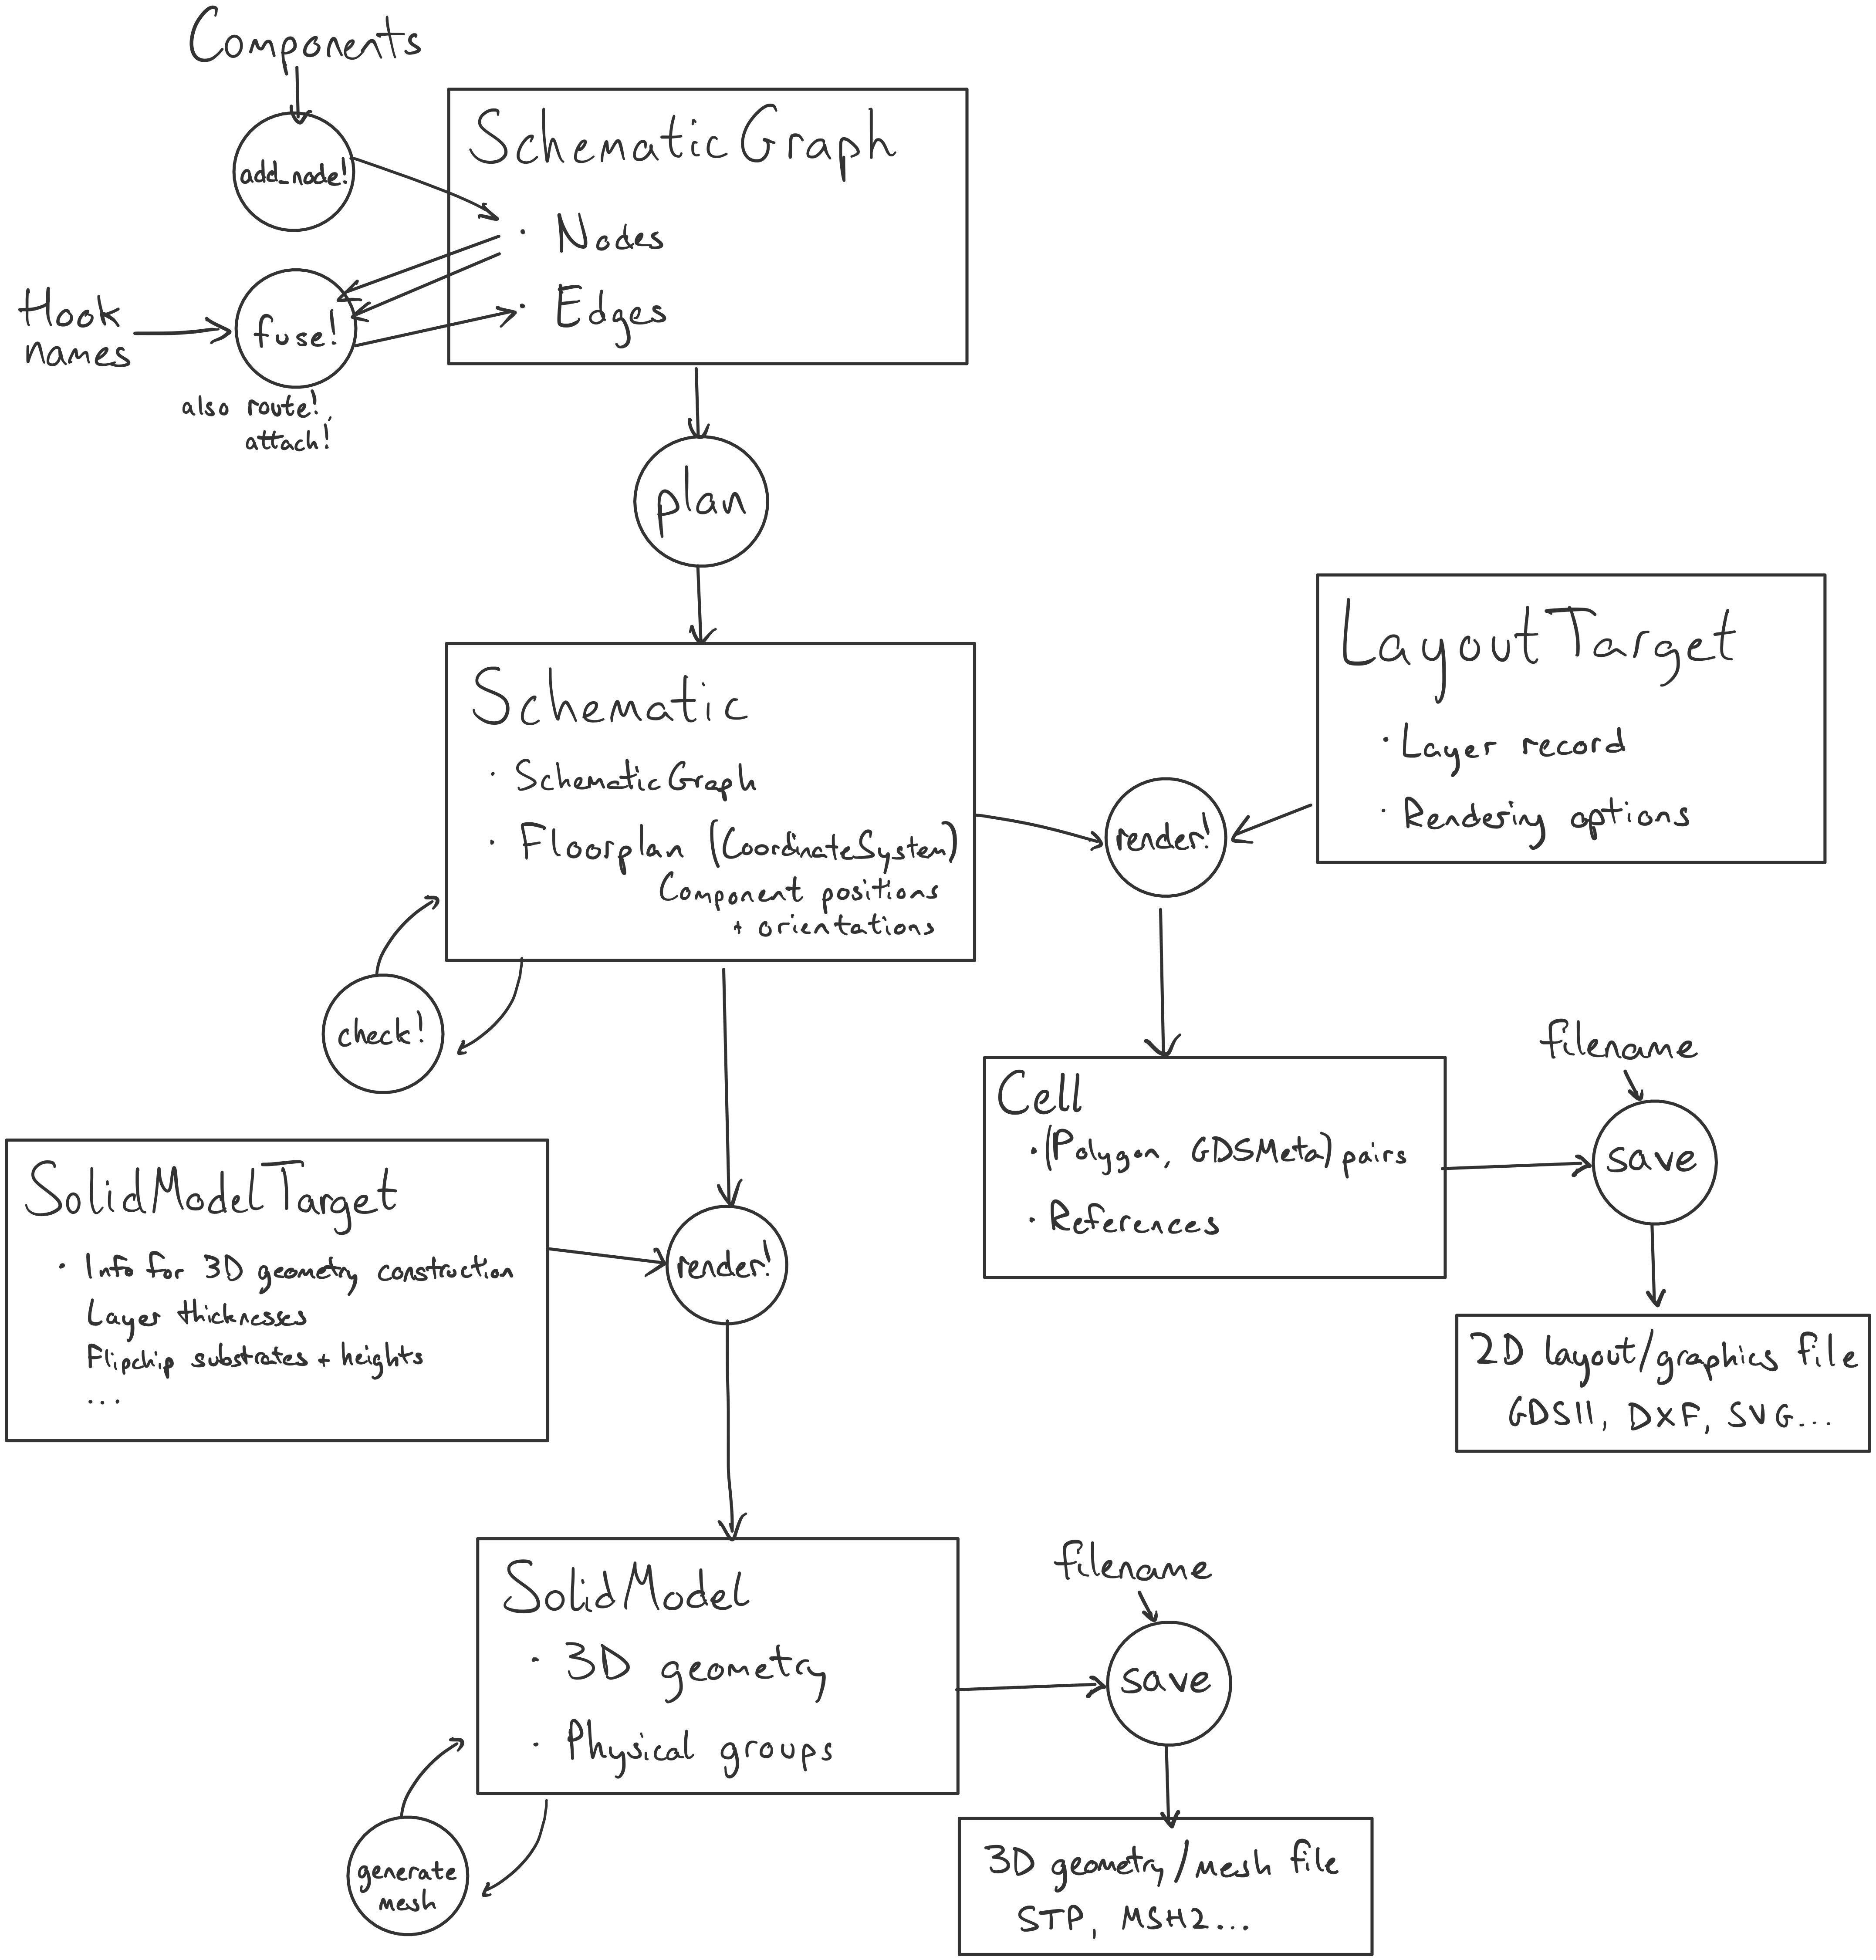 Components
add_node!
SchematicGraph
· Nodes
· Edges
Hook
names
fuse!
also route!,
attach!
plan
Schematic
· SchematicGraph
· Floorplan (CoordinateSystem)
Component positions
+ orientations
check!
LayoutTarget
· Layer record
· Rendering options
render!
Cell
· (Polygon, GDSMeta) pairs
· References
filename
save
2D layout/graphics file
GDSII, DXF, SVG...
SolidModelTarget
· Info for 3D geometry construction
Layer thicknesses
Flipchip substrates + heights
...
render!
SolidModel
· 3D geometry
· Physical groups
generate
mesh
filename
save
3D geometry/mesh file
STP, MSH2...